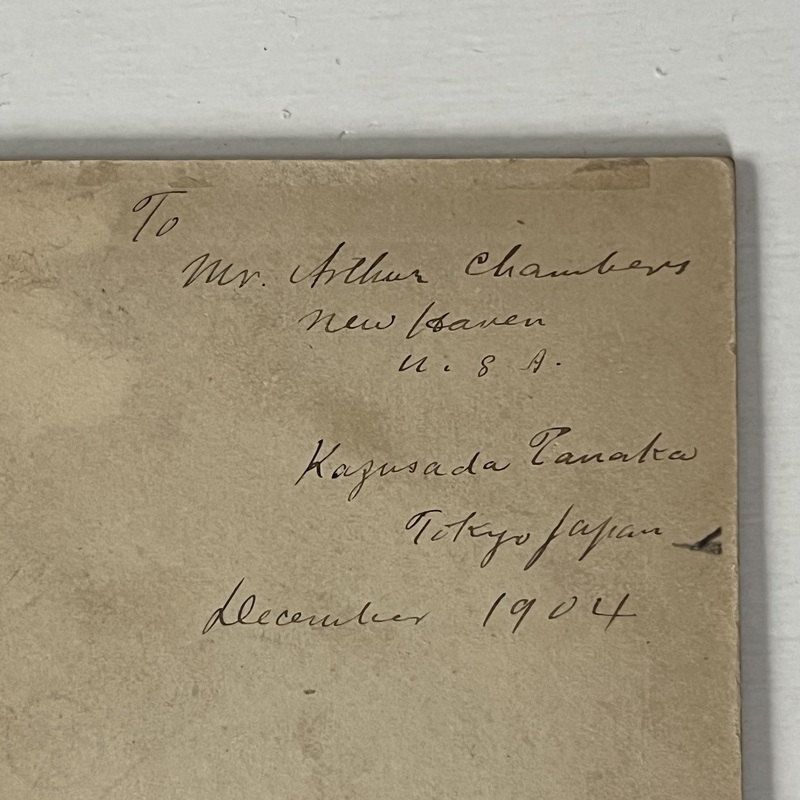 To
Mr. Arthur Chambers
New Haven
U. S A.
Kazusada Tanaka
Tokyo Japan
December 1904